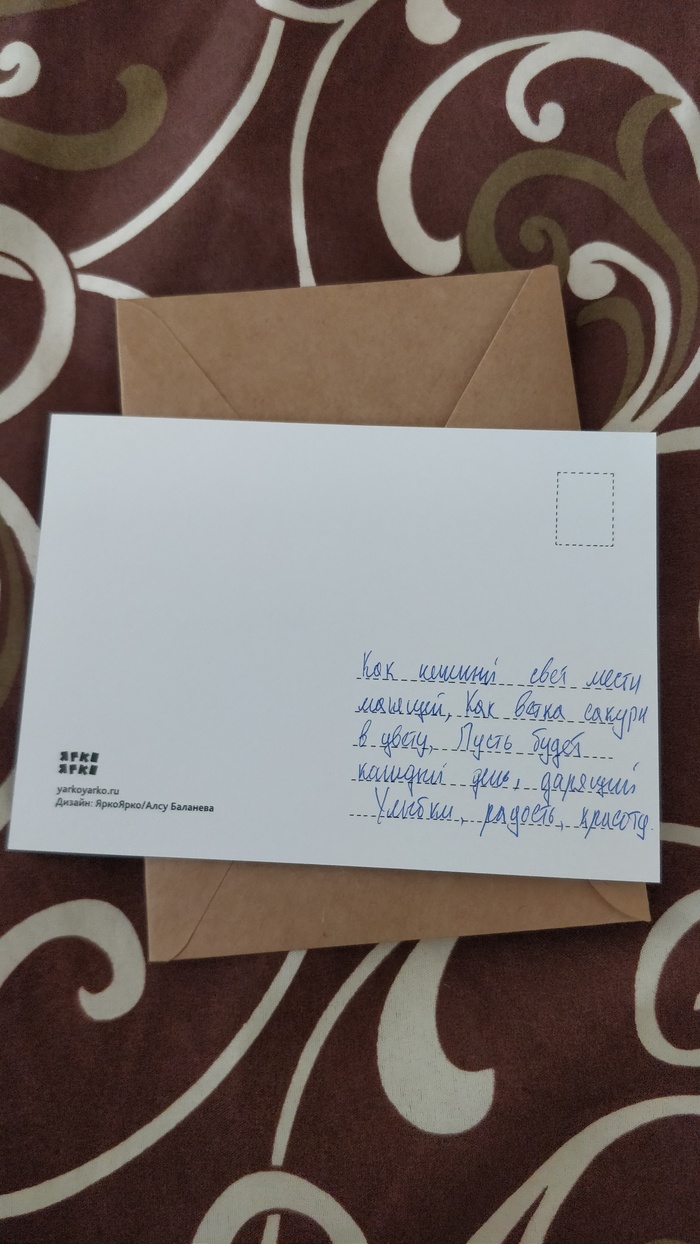 Как нежный свет мечты
манящей, Как ветка сакуры
в цвету, Пусть будет
каждый день, дарящий
Улыбки, радость, красоту.
ЯРКО
ЯРКО
yarkoyarko.ru
Дизайн: ЯркоЯрко/Алсу Баланева